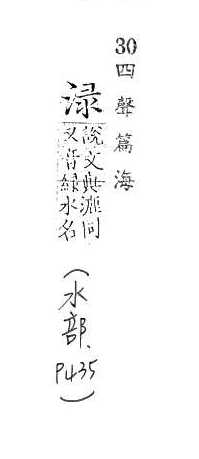 30四聲篇海
渌
說文與漉同
又音緑水名
(水部、P435)